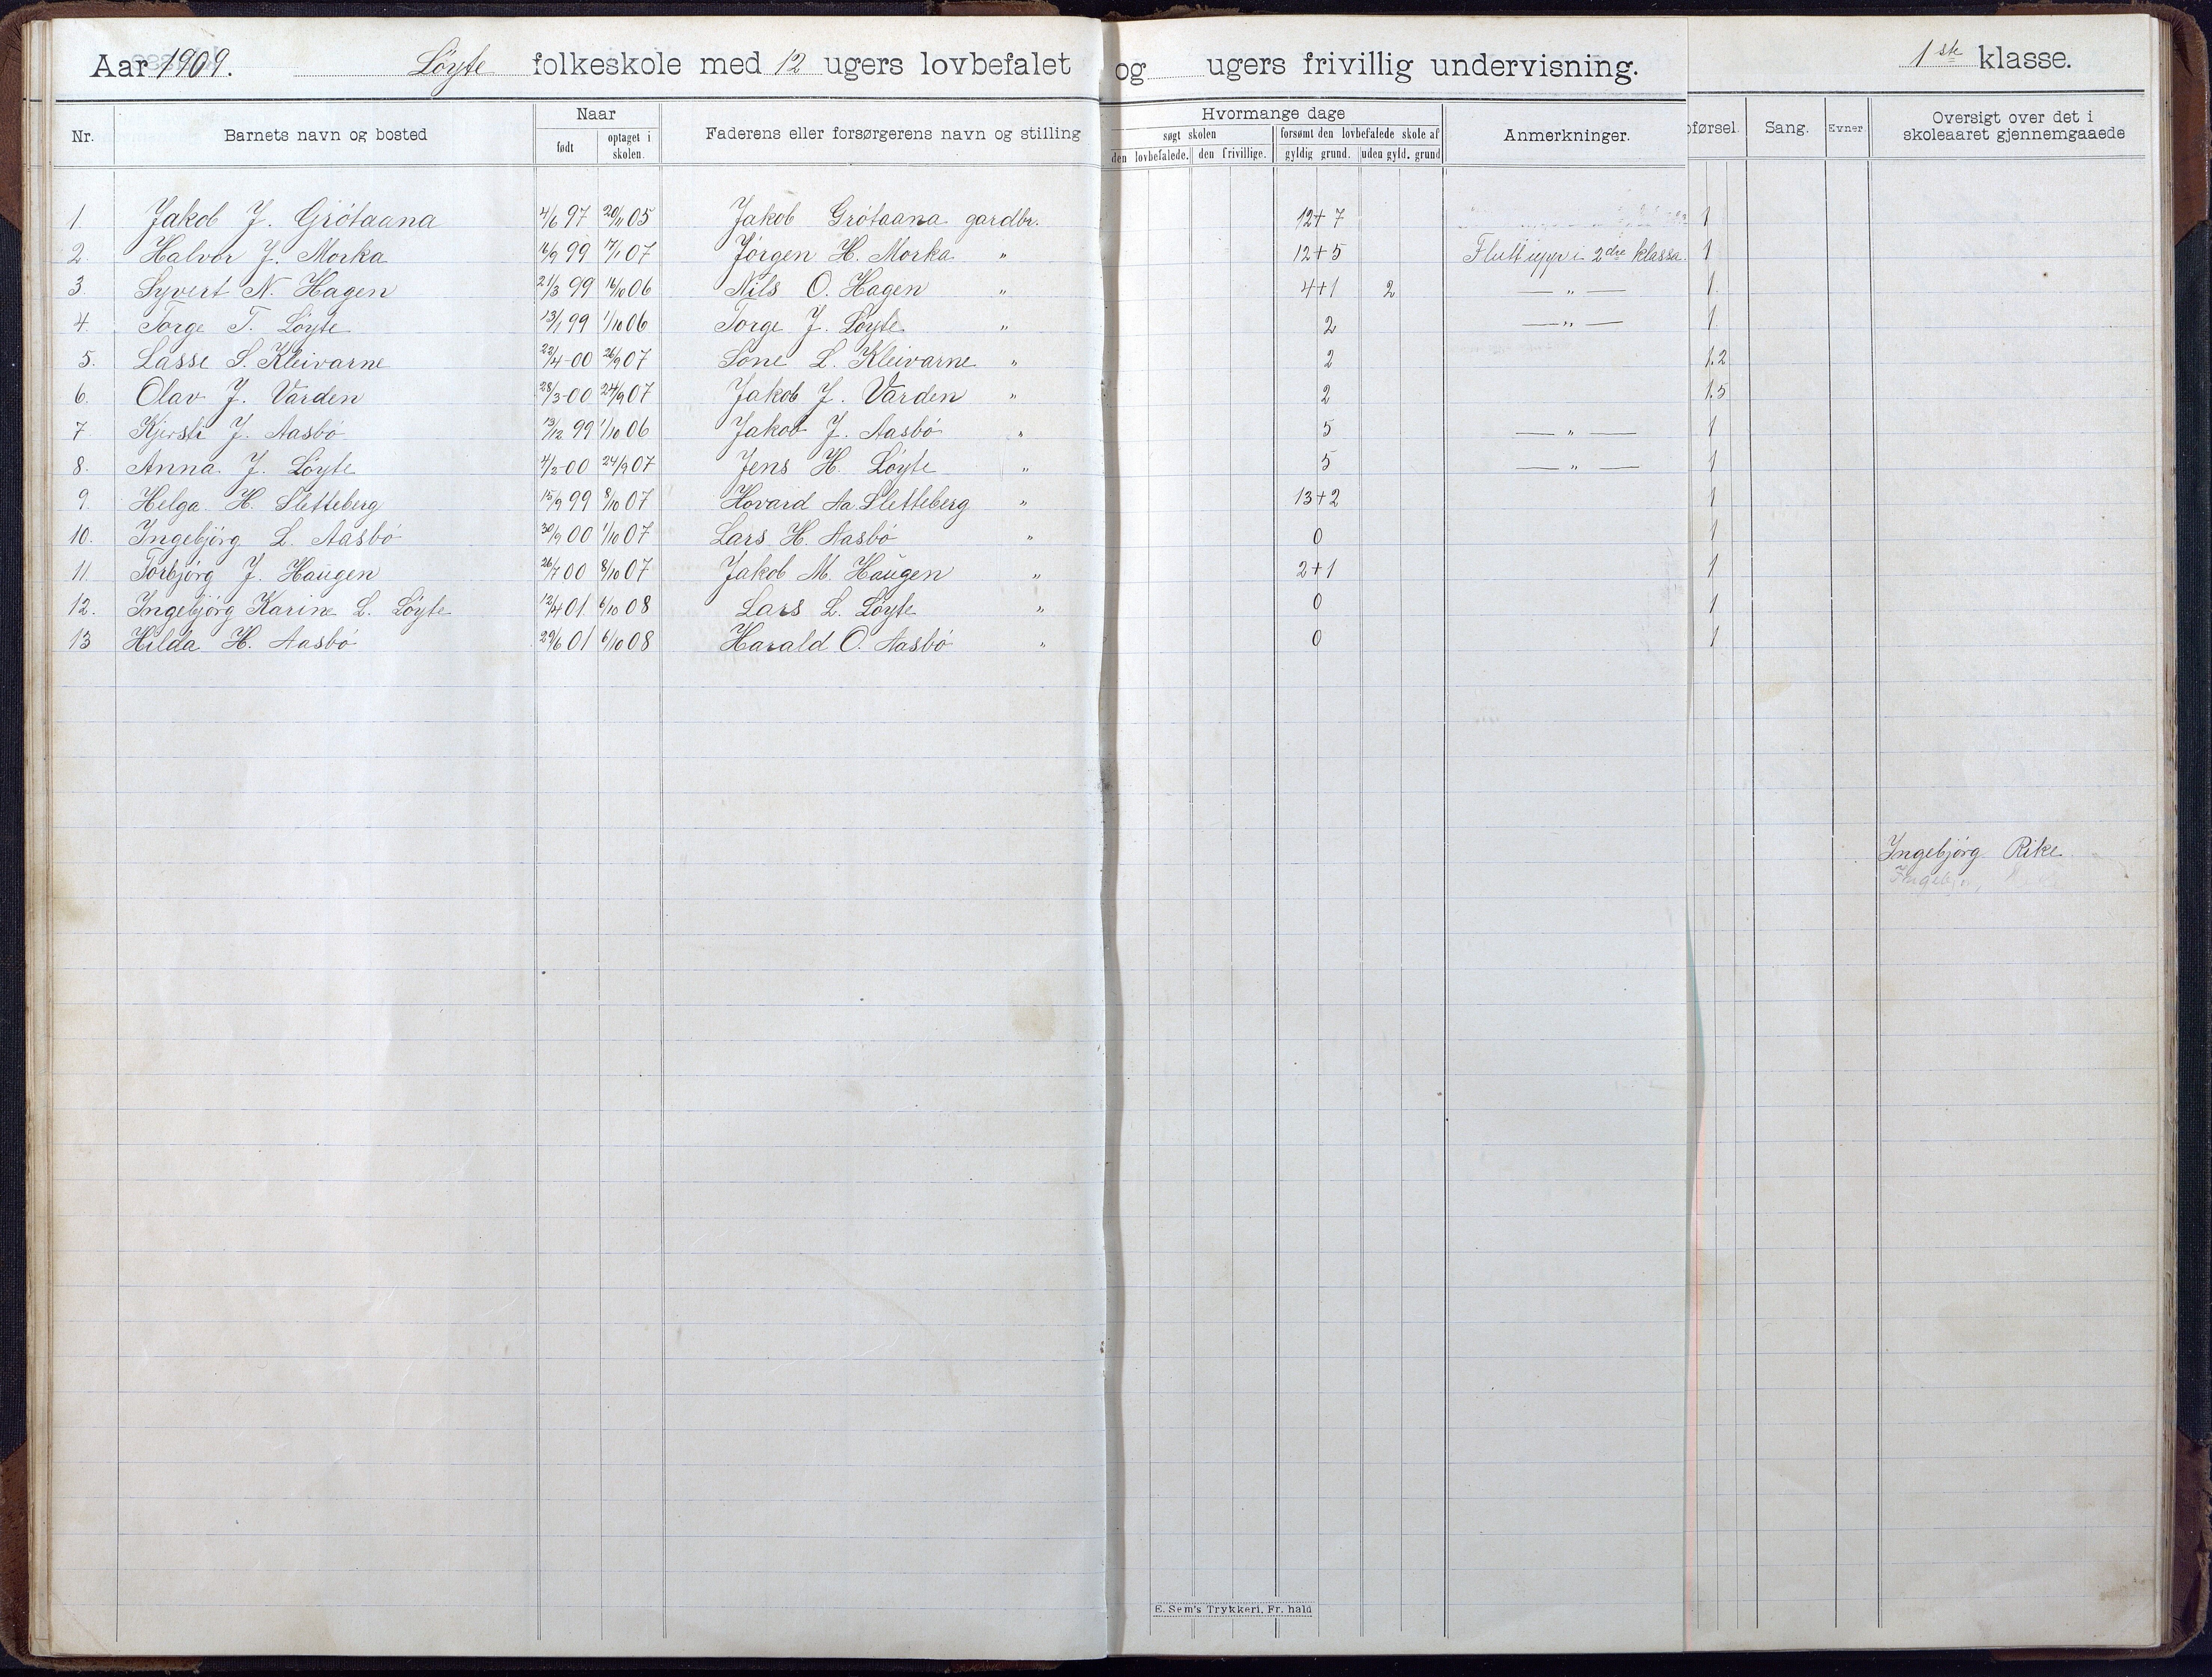 Aar 1909. Löyte folkeskole med 12 ugers lovbefalet og ugers frivillig undervisning. 1ste klasse.
Nr. Barnets navn og bosted Naar født optaget i skolen. Faderens eller forsørgerens navn og stilling Hvormange dage søgt skolen den lovbefalede. den frivillige. forsømt den lovbefalede skole af gyldig grund. uden gyld. grund Anmerkninger. førsel. Sang. Evner. Oversigt over det i skoleaaret gjennemgaaede
1. Jakob J. Grötaana 4/6 97 20/11 05 Jakob Grötaana gardbr. 12+7 1
2. Halvor J. Morka 16/9 99 17/1 07 Jörgen H. Morka " 12+5 Flutt upp i 2dre klassa. 1
3. Syvert N. Hagen 21/3 99 16/10 06 Nils O. Hagen " 4+1 2 — " — 1
4. Torge T. Löyte 13/1 99 1/10 06 Torge J. Löyte " 2 — " — 1
5. Lasse S. Kleivarne 22/4-00 26/9 07 Sone L. Kleivarne " 2 1.2
6. Olav J. Varden 28/3-00 24/9 07 Jakob J. Varden " 2 1.5
7 Kjersti J. Aasbö 13/12 99 1/10 06 Jakob J. Aasbö " 5 — " — 1
8. Anna J. Löyte 4/2-00 24/9 07 Jens H. Löyte " 5 — " — 1
9. Helga H. Sletteberg 15/9 99 8/10 07 Hovard Aa. Sletteberg " 13+2 1
10. Ingebjörg L. Aasbö 30/9 00 1/10 07 Lars H. Aasbö " 0 1
11. Torbjörg J. Haugen 26/7 00 8/10 07 Jakob M. Haugen " 2+1 1
12. Ingebjörg Karine L. Löyte 12/4 01 6/10 08 Lars L. Löyte " 0 1
13 Hilda H. Aasbö 29/6 01 6/10 08 Harald O. Aasbö " 0 1
Ingebjörg Rike
E. Sem's Trykkeri, Fr. hald